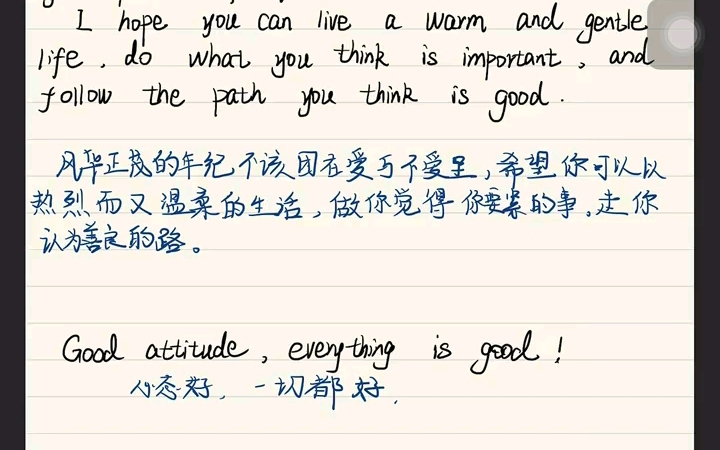 I hope you can live a warm and gentle
life, do what you think is important, and
follow the path you think is good.
风华正茂的年纪不该困在爱与不爱里，希望你可以以
热烈而又温柔的生活，做你觉得你要紧的事，走你
认为善良的路。
Good attitude, everything is good!
心态好，一切都好，